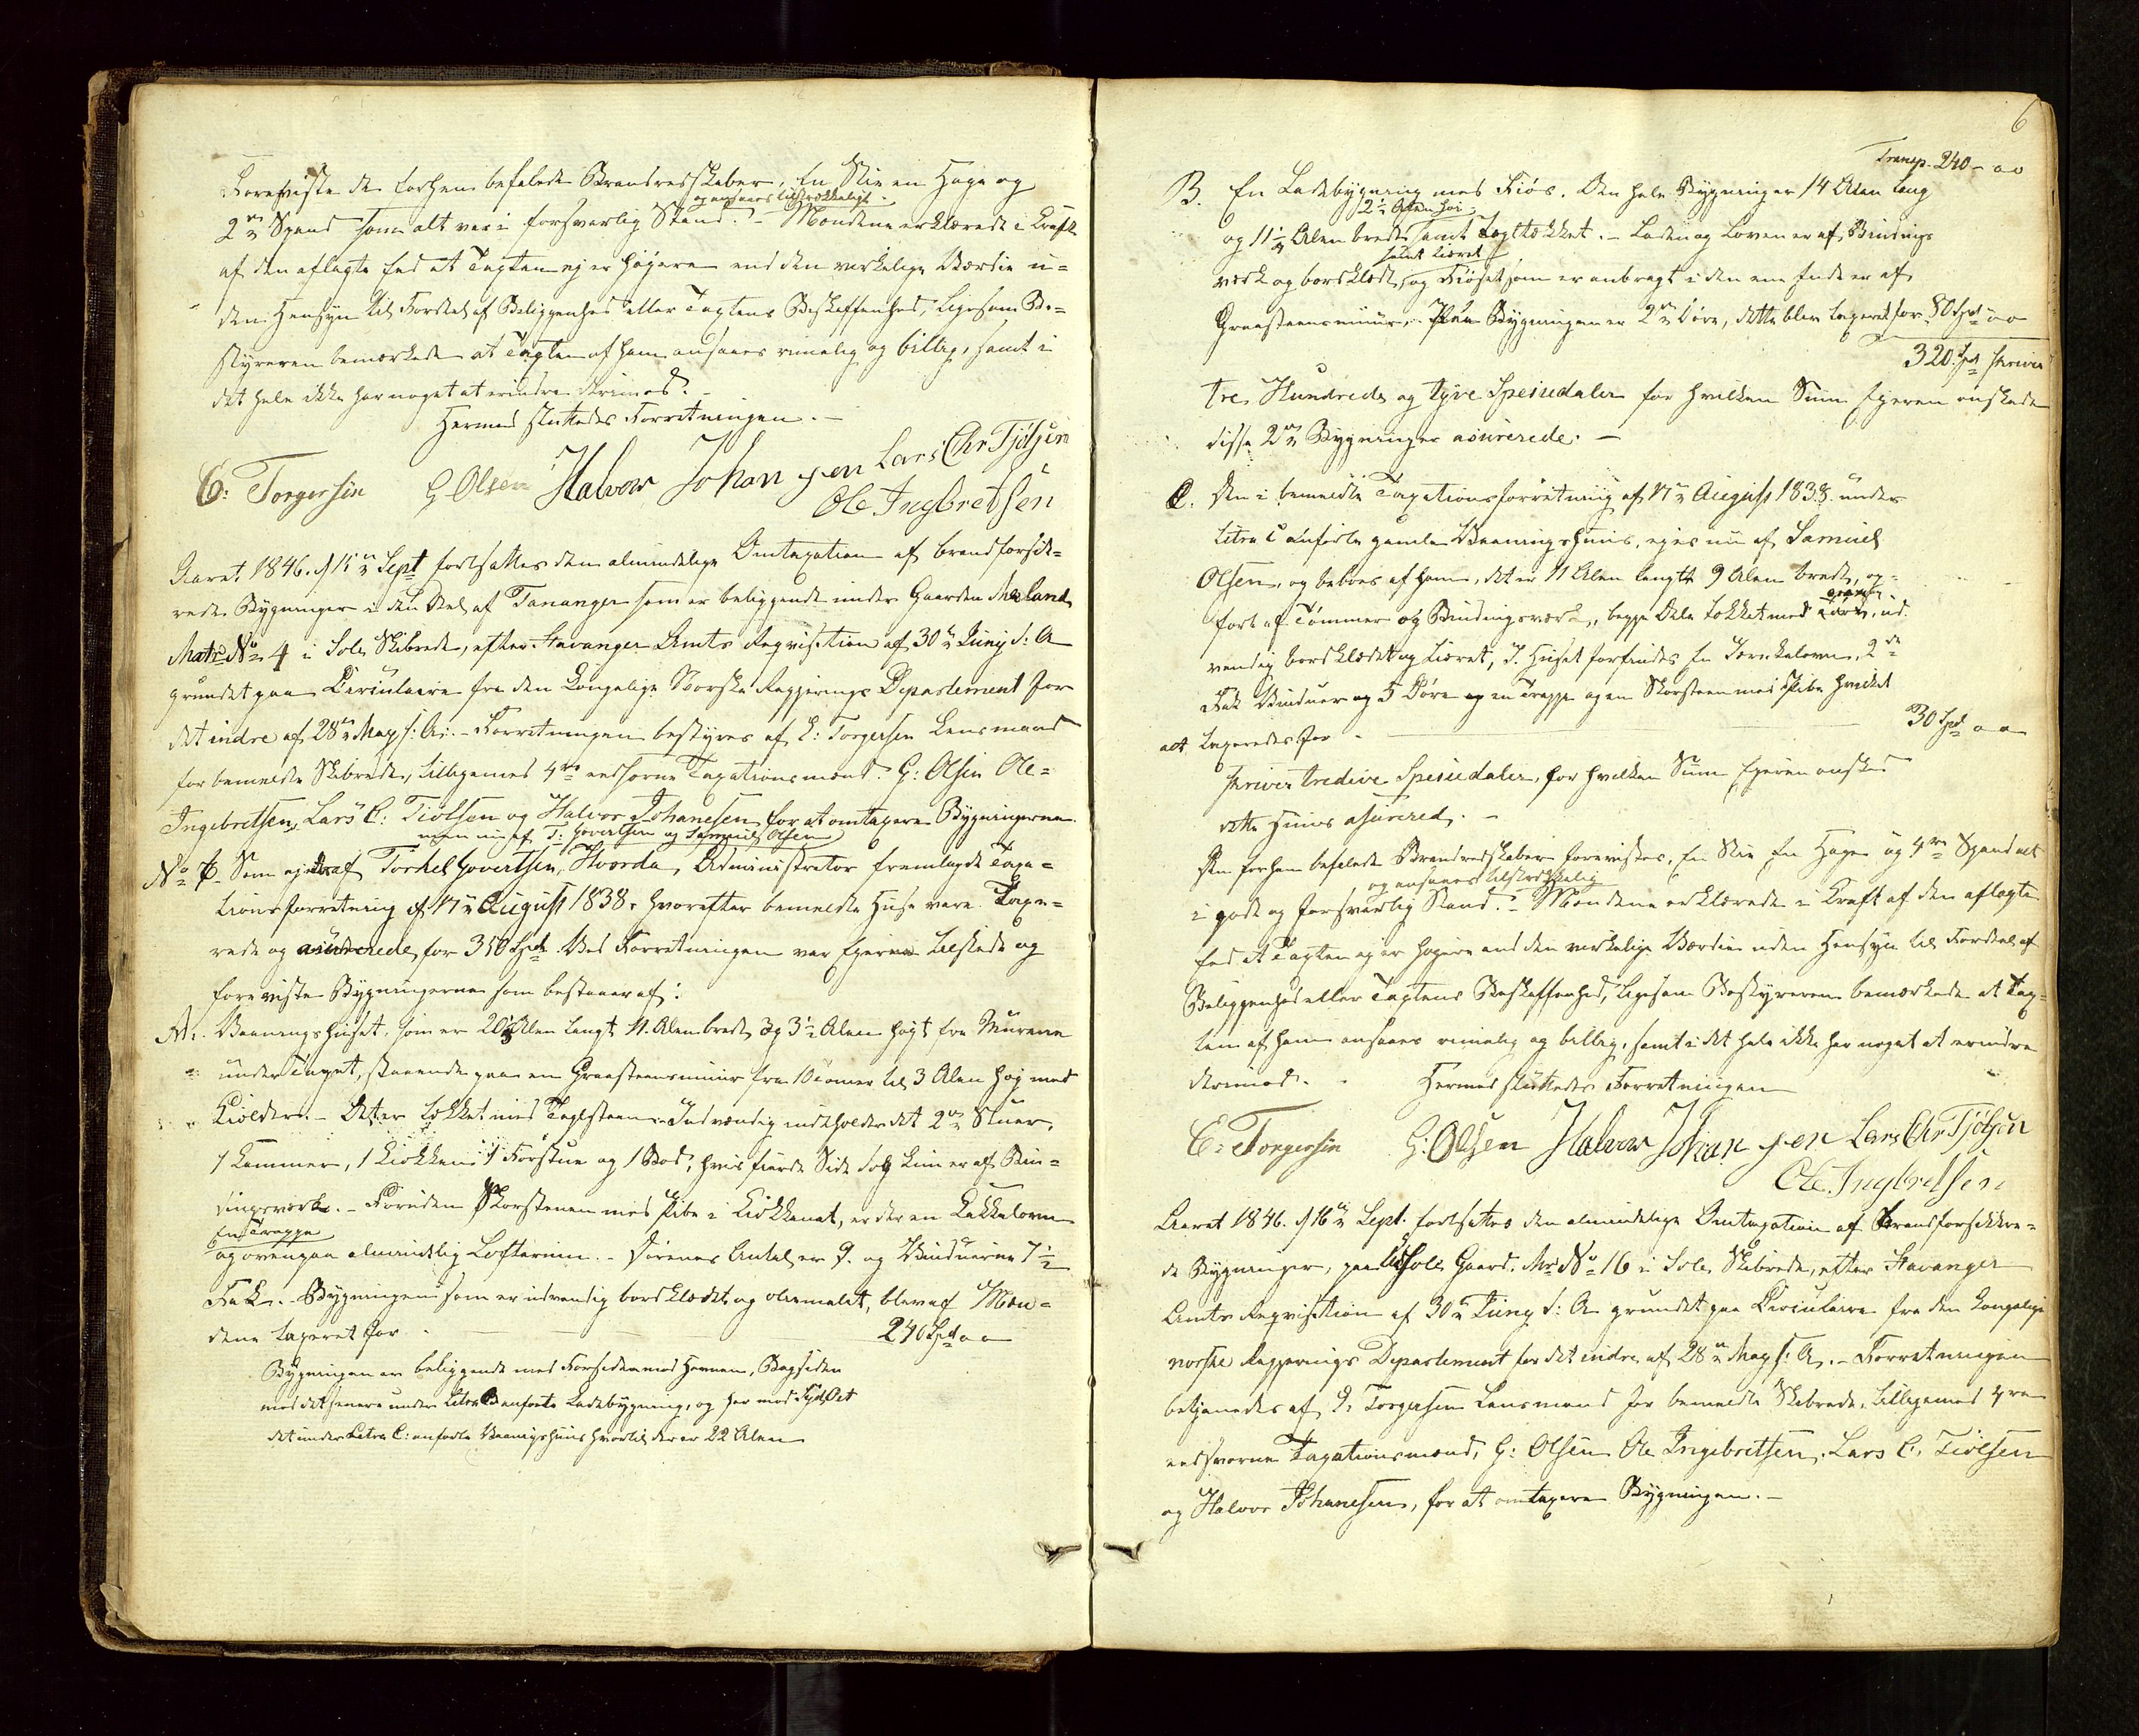 Forevistes de forhen befalede Brandredskaber, En Stie en Hage og
og ansaaes tilstrækkeligt.
2de Spand som alt var i forsvarlig Stand. - Mændene erklærede i Kraft
af den aflagte Eed at Taxten ej er høyere end den virkelige Værdie u=
den Hensyn til Fordel af Beliggenhed eller Taxtens Beskaffenhed, ligesom Be=
styreren bemærkede at Taxten af ham ansaaes rimelig og billig, samt i
det hele ikke har noget at erindre derimod. -
Hermed sluttedes Forretningen. -
E: Torgersen G Olsen Halvor Johan sen Lars Chr Tjølsen
Ole Ingbretsen
Aaret 1846. d 15de Sept fortsattes den almindelige Omtaxation af brandforsik=
rede Bygninger i den Deel af Tananger som er beliggende under Gaarden Meland
Matr No 4 i Sole Skibrede, efter Stavanger Amts Reqvisition af 30te Juny d: A
grundet paa Circulaire fra den Kongelige Norske Regjerings Departement for
det indre af 28de May s: A. - Forretningen bestyres af E: Torgersen Lensmand
for bemeldte Skibrede, tilligemed 4re eedsorne Taxationsmænd. G: Olsen Ole=
Ingebretsen, Lars C: Tiølsen og Halvor Johanesen for at omtaxere Bygningerne.
men nu af T: Govertsen og Samuel Olsen
No 6. Som ejedes af Torkel Govertsen, Hvorda, Administrator fremlagde Taxa=
tionsforretning af 17de August 1838, hvorefter bemeldte Huse vare Taxe=
rede og asurerede for 350 Spd. Ved Forretningen var Ejerne tilstede og
foreviste Bygningerne som bestaaer af:
A. Vaaningshuset, som er 20 Alen langt 11 Alen bredt og 3 1/2 Alen høyt fra Murene
under Taget, staaende paa en Graasteensmuur fra 10 tomer til 3 Alen høj med
Kielder. - Det er tækket med Taglsteen. Indvændig indeholder det 2de Stuer,
1 Kammer, 1 Kiøkken 1 Forstue og 1 Bod, hvis fierde Side kun er af Bin=
dingsværk. - Foruden Skorstenen med Pibe i Kiøkkenet, er der en Kakkelovn
En Trappe
og ovenpaa almindelig Lofterum. - Dørenes Antal er 9. og Vinduerne 7 1/2
Fak. - Bygningen som er udvendig bordklædt og oliemalet, blev af Mæn=
dene taxeret for - 240 Spd " "
Bygningen er beliggende med Forsiden mod Havnen, Bagsiden
mod det senere under Litra B anførte Ladebygning, og har mod Syd Ost
det under Litra C: anførte Vaaningshuus hvortil der er 22 Alen
6
Transp. 240 - " "
B. En Ladebygning med Fiøs. Den hele Bygning er 14 Alen lang
2 1/2 Alen høi
og 11 1/2 Alen bredt samt Tagltækket. - Laden og Loven er af Bindings
samt tiæret
værk og bordklædt, og Fiøset som er anbragt i den ene Ende er af
Graasteensmuur. - Paa Bygningen er 2de Døre, dette blev taxeret for 80 Spd " "
320 Spd skriver
tre Hundrede og tyve Spesiedaler for hvilken Sum Ejeren onskede
disse 2de Bygninger asurerede. -
C. Den i bemeldte Taxationsforretning af 17de August 1838. under
Litra C anførte gamle Vaaningshuus, ejes nu af Samuel
Olsen, og beboes af ham, det er 11 Alen langt 9 Alen bredt, op=
ført af Tømmer og Bindingsværk, begge Dele tækket med, ud
vendig bordklædt og tiæret, I Huset forfindes En Jernkelovn, 2de
Fak Vinduer og 5 Døre og en Trappe og en Skorsteen med Pibe hvilket
alt taxeredes for - 30 Spd " "
skriver tredive Spesiedaler, for hvilken Sum Ejeren onsker
dette Huus asurered. -
De forhen befalede Brandredskaber forevistes, En Stie En Hage og 4re Spand alt
og ansaaes tilstrækkelig
i godt og forsvarlig Stand. - Mændene erklærede i Kraft af den aflagte
Eed at Taxten ej er høyere end den virkelige Værdie uden Hensyn til Fordeel af
Beliggenhed eller Taxtens Beskaffenhed, ligesom Bestyreren bemærkede at Tax=
ten af ham ansaaes rimelig og billig, samt i det hele ikke har noget at erindre
derimod. - Hermed sluttedes Forretningen
E: Torgersen G: Olsen Halvor Johan sen Lars Chr Tjølsen
Ole Ingbretsen
Aaret 1846. d 16de Sept. fortsattes den almindelige Omtaxation af brandforsikkre=
de Bygninger, paa Sole Gaard. Mr No 16 i Sole Skibrede, efter Stavanger
Amts Reqvisition af 30te Juny d: A grundet paa Circulaire fra den Kongelige
norske Regjerings Departement for det indre af 28de May s: A. - Forretningen
betjenedes af E: Torgersen Lensmand for bemeldte Skibrede, tilligemed 4re
eedsvorne Taxationsmænd, G: Olsen Ole Ingebretsen, Lars C. Tiølsen
og Halvor Johanesen, for at omtaxere Bygningen. -